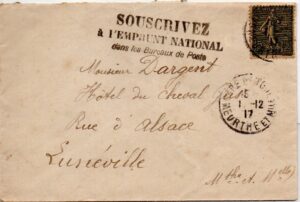 SOUSCRIVEZ
à l'EMPRUNT NATIONAL
dans les Bureaux de Poste
Monsieur Dargent
Hôtel du Cheval
Rue d'Alsace
Lunéville
Mthe et Mlle
1 -12
17
MEURTHE ET